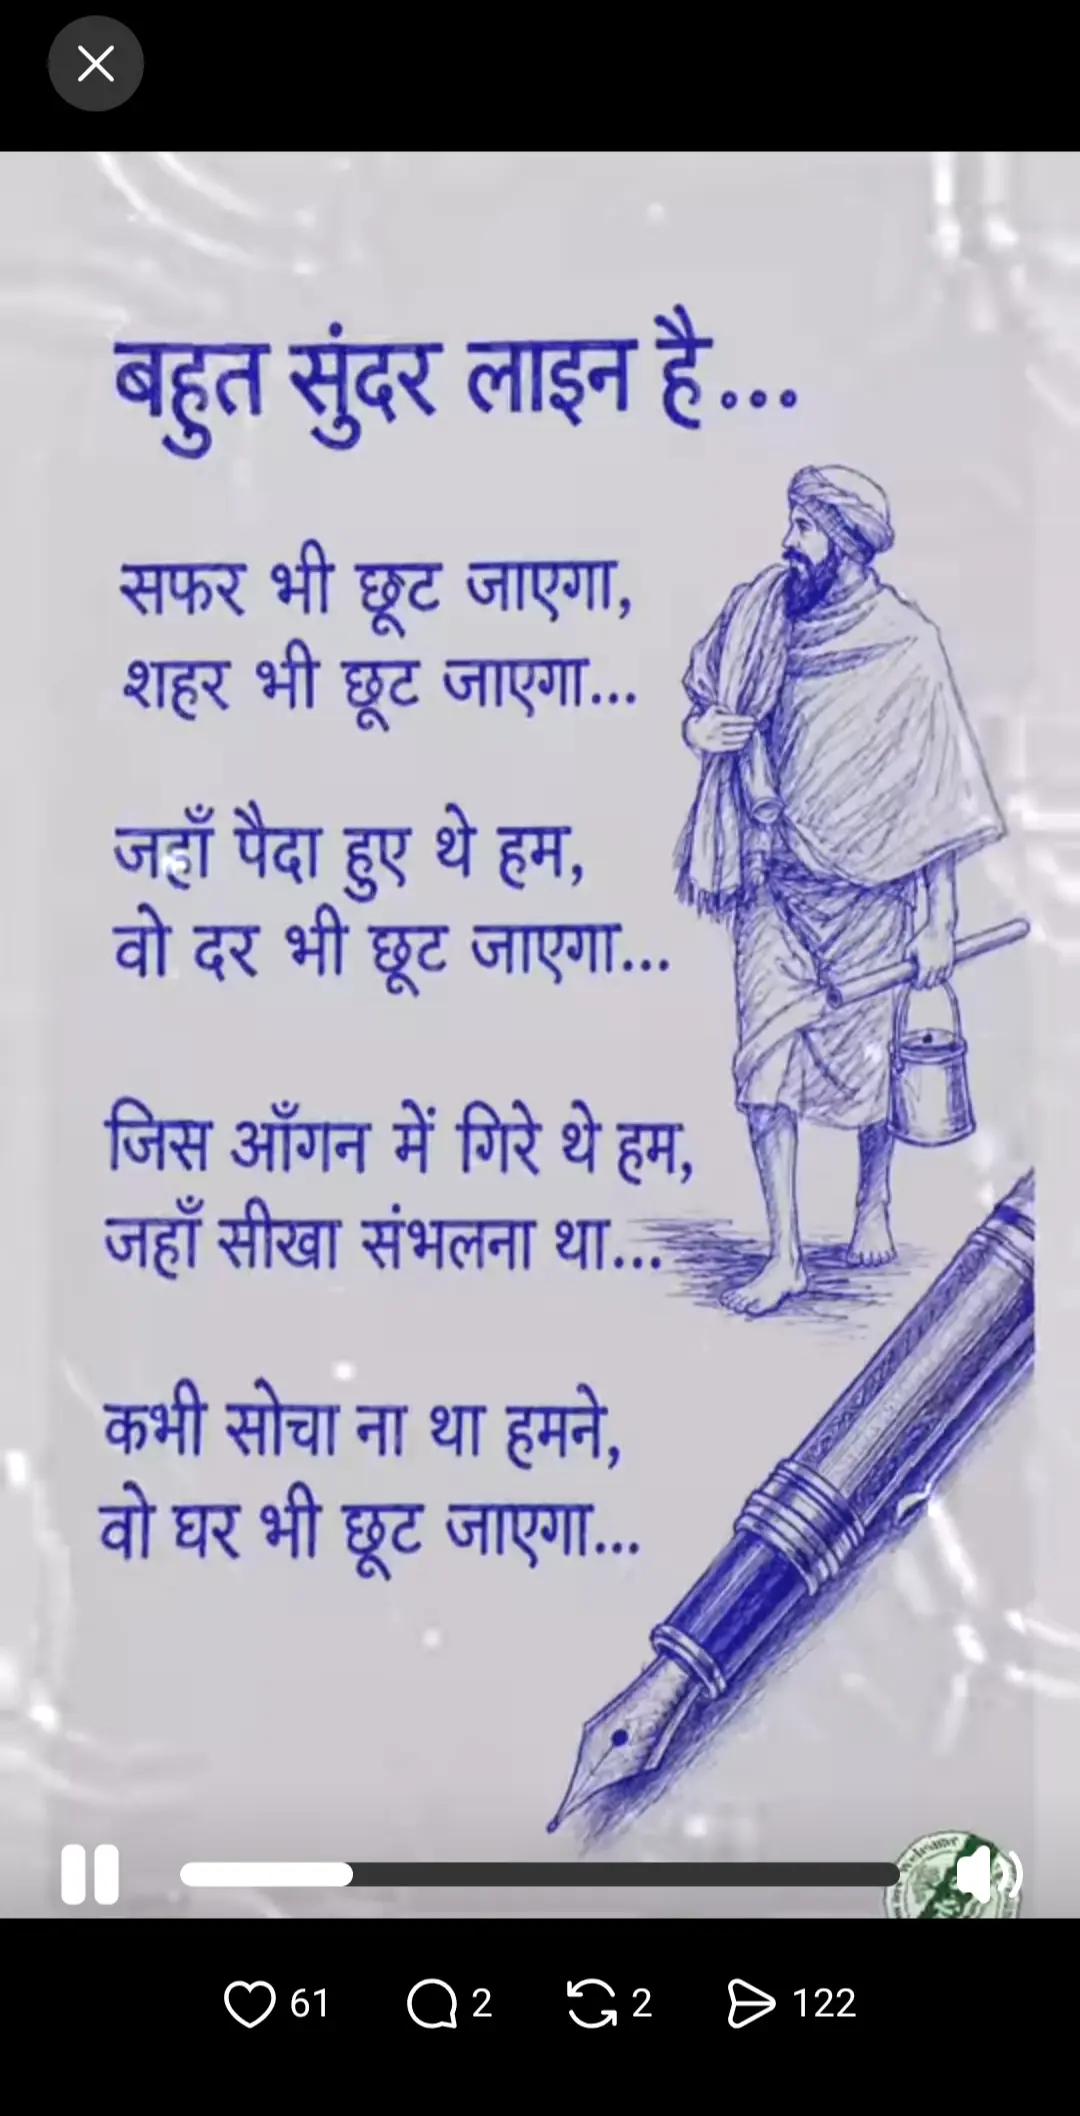 बहुत सुंदर लाइन है...
सफर भी छूट जाएगा,
शहर भी छूट जाएगा...
जहाँ पैदा हुए थे हम,
वो दर भी छूट जाएगा...
जिस आँगन में गिरे थे हम,
जहाँ सीखा संभलना था...
कभी सोचा ना था हमने,
वो घर भी छूट जाएगा...
61 2 2 122